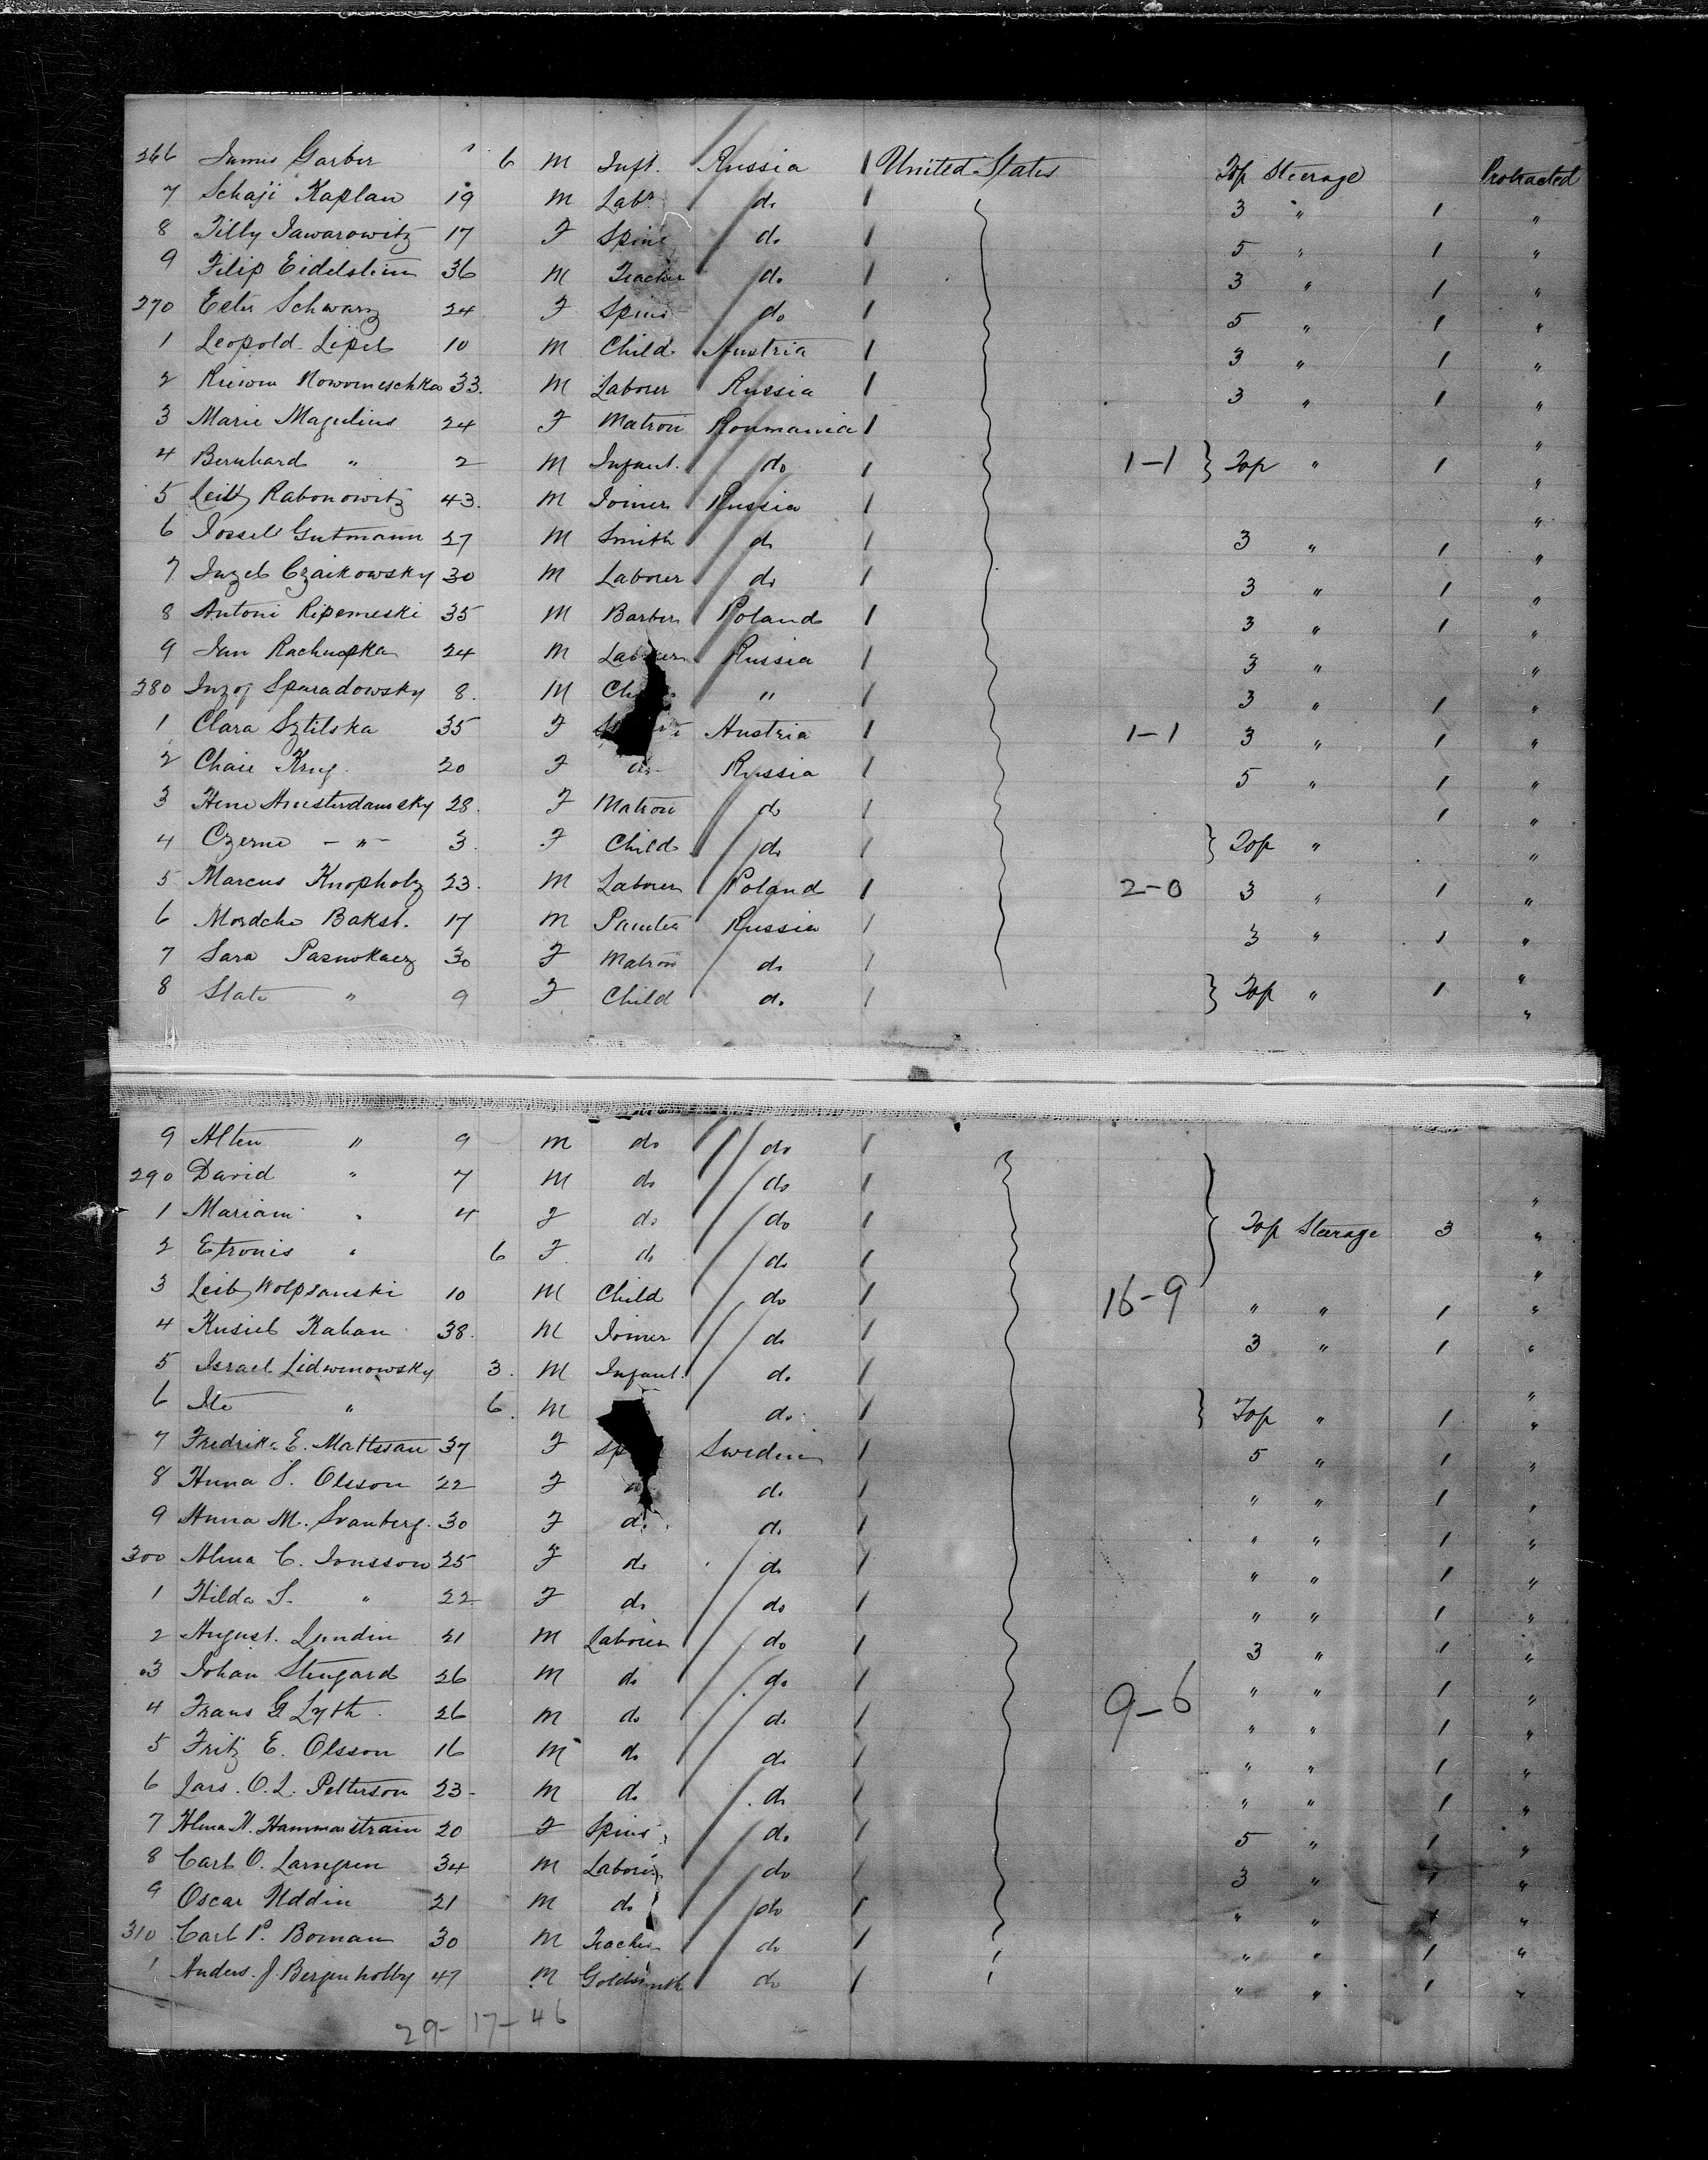 266 James Garber 6 M Inft. Russia 1 United States Top Steerage Protracted
7 Schaji Kaplan 19 M Labr. do 1 3 " 1 "
8 Tilly Jawarowitz 17 F Spins do 1 5 " 1 "
9 Filip Eidelstein 36 M Teacher do 1 3 " 1 "
270 Ester Schwarz 24 F Spins do 1 5 " 1 "
1 Leopold 10 M Child Austria 1 3 " 1 "
2 33 M Laborer Russia 1 3 " 1 "
3 Marie Magulius 24 F Matron Roumania 1 "
4 Bernhard " 2 M Infant. do 1 1-1 } Top " 1 "
5 Leib Rabonowitz 43. M Joiner Russia 1 "
6 Jossel Gutmann 27 M Smith do 1 3 " 1 "
7 Juzeb Czaikowsky 30 M Laborer do 1 3 " 1 "
8 Antoni Ripemeski 35 M Barber Poland 1 3 " 1 "
9 Jan 24 M Laborer Russia 1 3 " "
280 Juzof Sparadowsky 8. M " 1 3 " 1 "
1 Clara Sztilska 35 F Austria 1 1-1 3 " 1 "
2 Chaie Krug 20 F do Russia 1 5 " 1 "
3 Hene Amsterdamsky 28. F Matron do 1 1 "
4 Czerne - " - 3. F Child do 1 } Top " "
5 Marcus Knopholz 23. M Laborer Poland 1 2-0 3 " 1 "
6 Mordche Bakst. 17 M Painter Russia 1 3 " 1 "
7 Sara 30 F Matron do 1 "
8 Slate " 9 F Child do. 1 } Top " 1 "
9 Alten " 9 M do do 1
290 David " 7 M do do 1 "
1 Mariam " 4 F do do 1 } Top Steerage 3 "
2 Etronis " 6 F. do do 1 "
3 Leib Wolpsanski 10 M Child do 1 16-9 " " 1 "
4 Kusiel Kahan 38. M Joiner do 1 3 " 1 "
5 Israel Lidwinowsky 3. M Infant. do. 1 "
6 Ite " 6. M do. 1 } Top " 1 "
7 Fredrika E. Mattssan 37 F Sweden 1 5 " 1 "
8 Anna S. Olsson 22 F do. 1 " " 1 "
9 Anna M. Svanberg. 30 F do. do. 1 " " 1 "
300 Alma C. Jonsson 25 F do do 1 " " 1 "
1 Hilda S. " 22 F do. do 1 " " 1 "
2 August. Lundin 21 M Laborer do 1 3 " 1 "
3 Johan Stengard 26 M do do. 1 " " 1 "
4 Frans G Lyth. 26 M do do. 1 9-6 " " 1 "
5 Fritz E. Olsson 16 M do do. 1 " " 1 "
6 Lars. O. L. Petterson 23- M do do. 1 " " 1 "
7 Alma N. Hammarstrain 20 F Spins. do. 1 5 " 1 "
8 Carl O. Larngren 34 M Laborer do 1 3 " 1 "
9 Oscar Uddin 21 M do do 1 " " 1 "
310 Carl P. Boman 30 M Teacher do 1 " " 1 "
1 Anders. J. Bergenholty 47 M Goldsmith do 1 " " 1 "
29-17-46